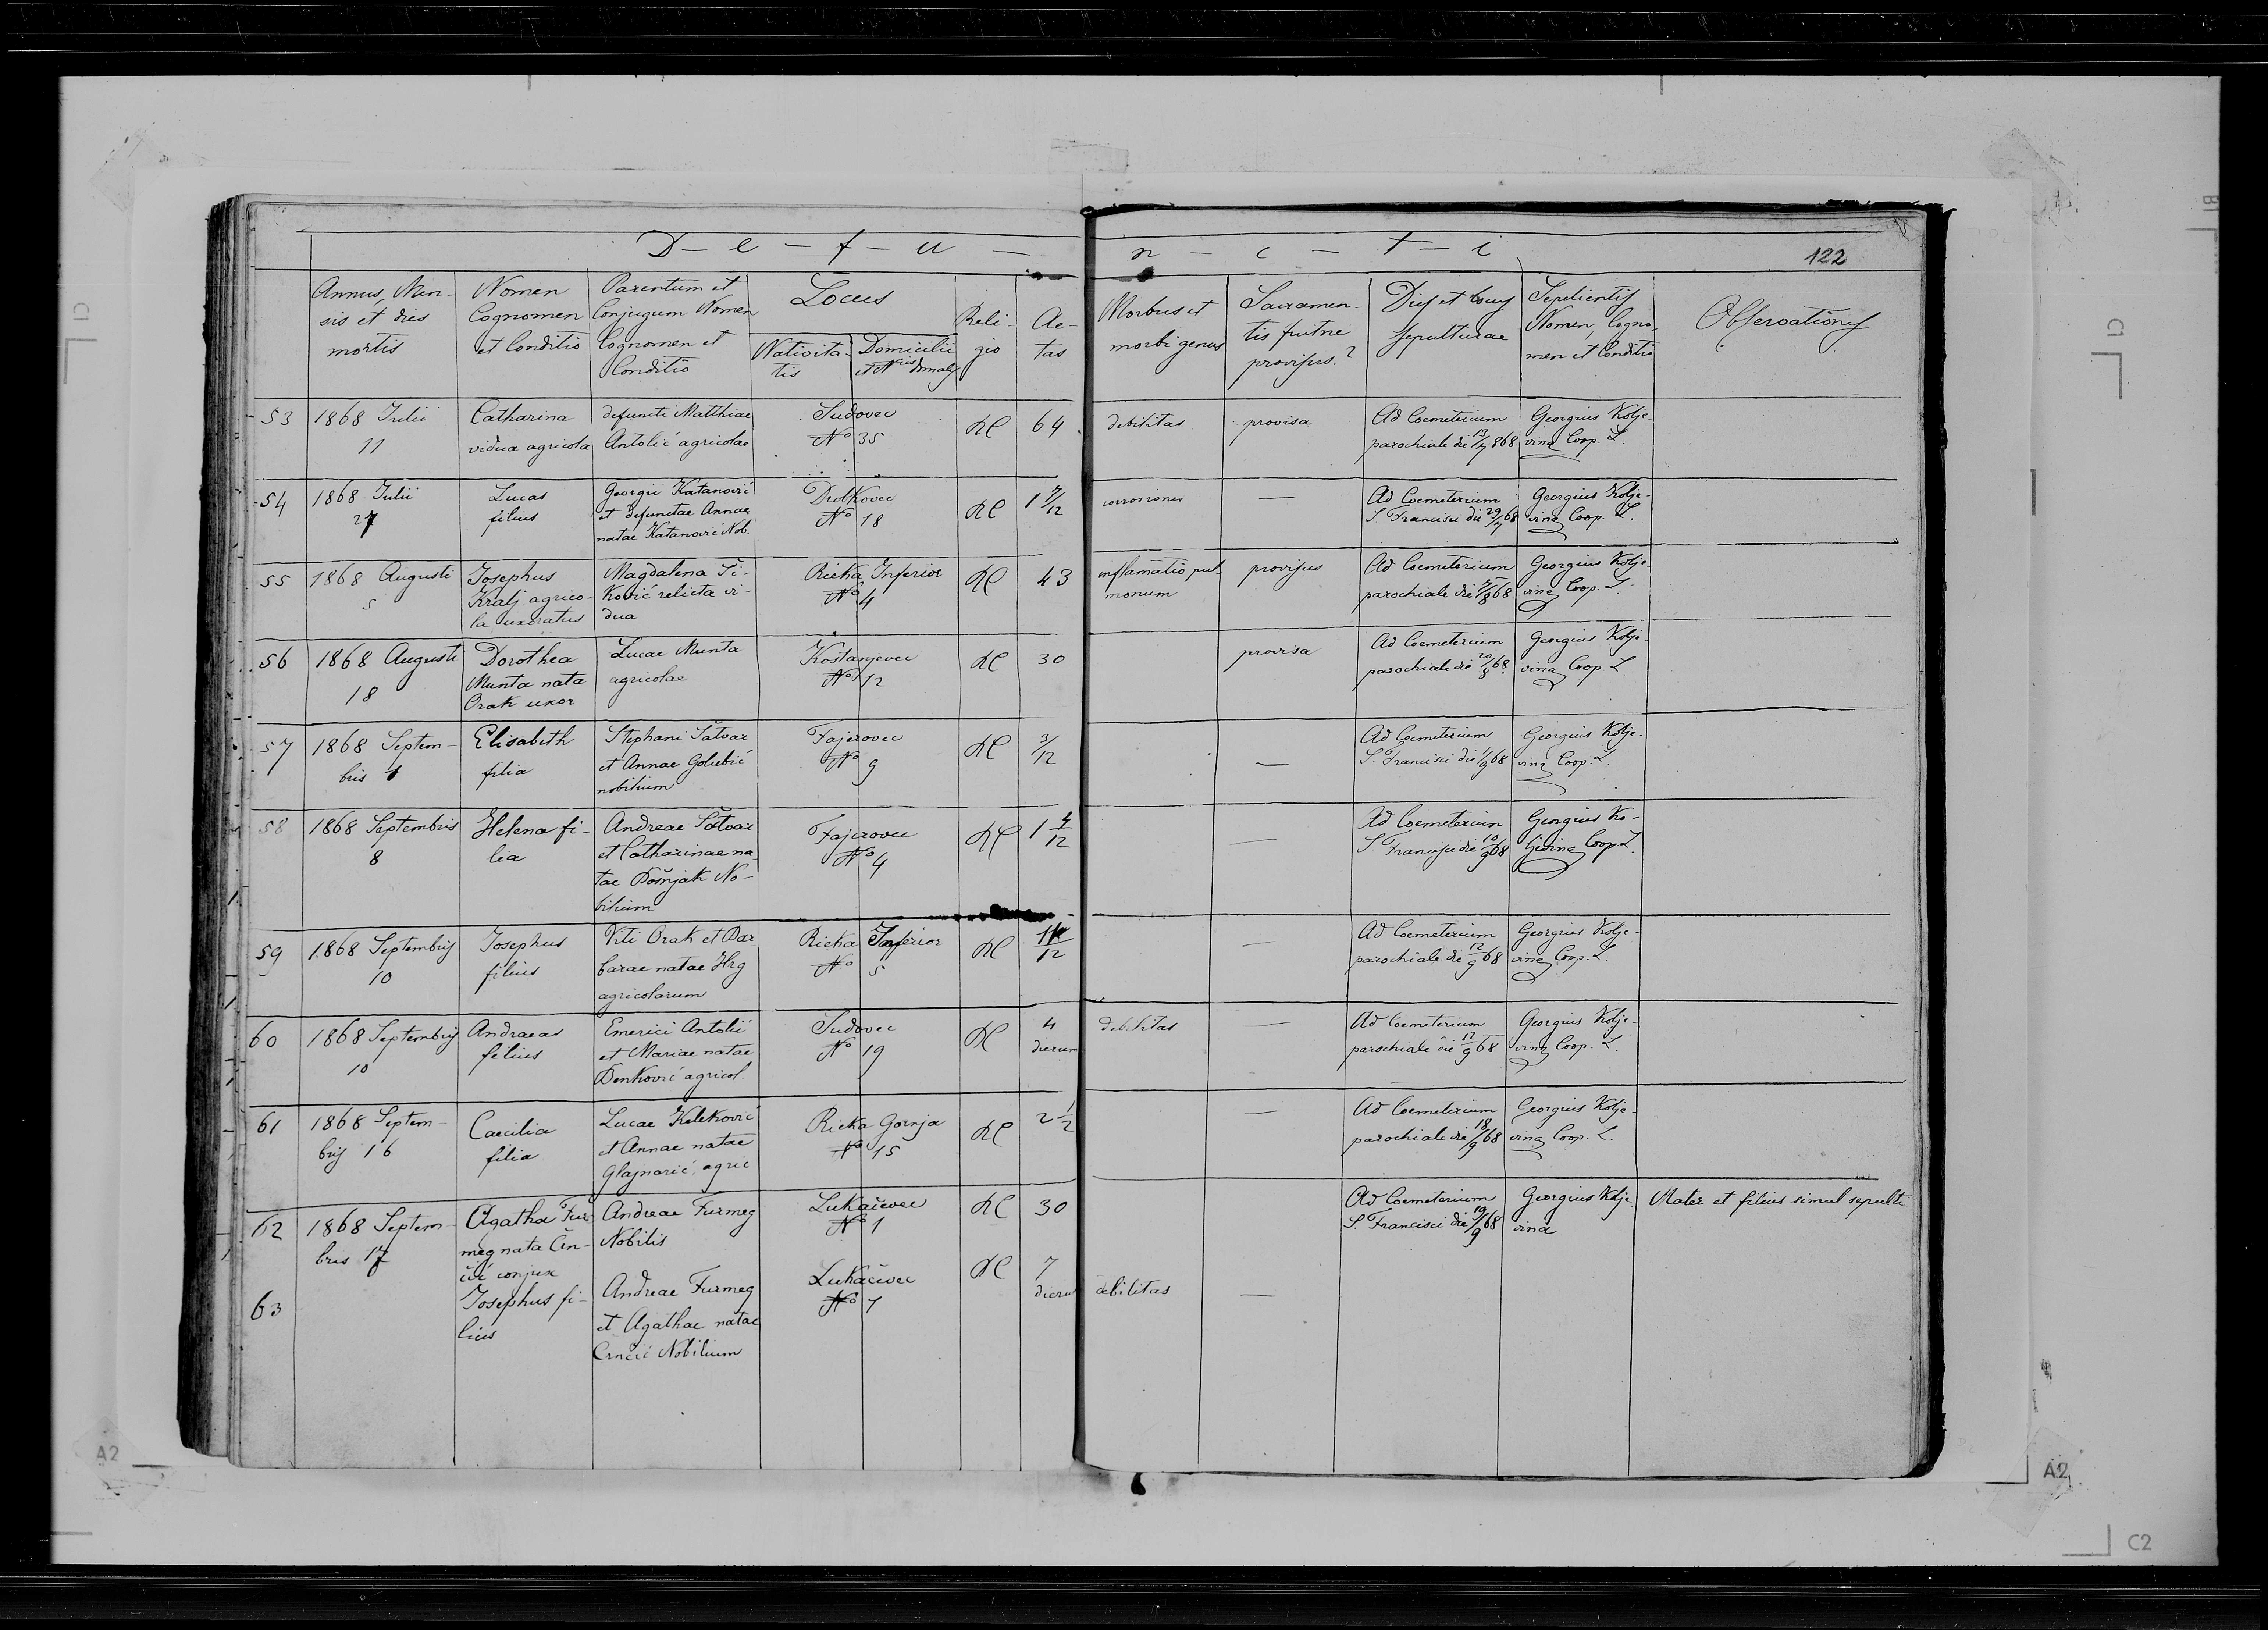 D - e - f - u - n - c - t - i
122
Annus, Men-
sis et dies
mortis
Nomen
Cognomen
et Conditio
Parentum et
Conjugum Nomen
Cognomen et
Conditio
Locus
Nativita-
tis
Domicilii
et Nri domalis
Reli-
gio
Ae-
tas
Morbus et
morbi genus
Sacramen-
tis fuitne
provisus?
Dies et locus
sepulturae
Sepelientis
Nomen, Cogno-
men et Conditio
Observationes
53
1868 Julii
11
Catharina
vidua agricola
defuncti Matthiae
Antolić agricolae
Sudovec
No 35
RC
64
debilitas
provisa
Ad Coemeterium
parochiale die 13/7 868
Georgius Kolje-
vina Coop. L.
54
1868 Julii
27
Lucas
filius
Georgii Katanović
et defunctae Annae
natae Katanović Nob.
Drotkovec
No 18
RC
1 7/12
corrosiones
—
Ad Coemeterium
S. Francisci die 29/7 68
Georgius Kolje-
vina Coop. L.
55
1868 Augusti
5
Josephus
Kralj agrico-
la uxoratus
Magdalena Ti-
ković relicta vi-
dua
Rieka Inferior
No 4
RC
43
inflamatio pul-
monum
provisus
Ad Coemeterium
parochiale die 7/8 68
Georgius Kolje-
vina Coop. L.
56
1868 Augusti
18
Dorothea
Munta nata
Orak uxor
Lucae Munta
agricolae
Kostanjevec
No 12
RC
30
provisa
Ad Coemeterium
parochiale die 20/8 68.
Georgius Kolje-
vina Coop. L.
57
1868 Septem-
bris 1
Elisabeth
filia
Stephani Šatvar
et Annae Golubić
nobilium
Fajerovec
No 9
RC
3/12
—
Ad Coemeterium
S. Francisci die /9 68
Georgius Kolje-
vina Coop. L.
58
1868 Septembris
8
Helena fi-
lia
Andreae Šatvar
et Catharinae na-
tae Bošnjak No-
bilium
Fajerovec
No 4
RC
1 4/12
—
Ad Coemeterium
S. Francisci die 10/9 68
Georgius Ko-
ljevina Coop L.
59
1868 Septembris
10
Josephus
filius
Viti Orak et Bar
barae natae Hrg
agricolarum
Rieka Inferior
No 5
RC
/12
—
Ad Coemeterium
parochiale die 12/9 68
Georgius Kolje-
vina Coop. L.
60
1868 Septembris
10
Andraeas
filius
Emerici Antolić
et Mariae natae
Benković agricol.
Sudovec
No 19
RC
4
dierum
debilitas
—
Ad Coemeterium
parochiale die 12/9 68
Georgius Kolje-
vina Coop. L.
61
1868 Septem-
bris 16
Caecilia
filia
Lucae Keleković
et Annae natae
Glajnarić, agric
Rieka Gornja
No 15
RC
2 1/2
—
Ad Coemeterium
parochiale die 18/9 68
Georgius Kolje-
vina Coop. L.
62
1868 Septem-
bris 17
Agatha Fur-
meg nata Crn-
čić conjux
Andreae Furmeg
Nobilis
Lukačevec
No 1
RC
30
Ad Coemeterium
S. Francisci die 19/9 68
Georgius Kolje-
vina
Mater et filius simul sepulti
63
Josephus fi-
lius
Andreae Furmeg
et Agathae natae
Crnčić Nobilium
Lukačevec
No 7
RC
7
dierum
debilitas
—
C1
C1
B1
A2
A2
C2